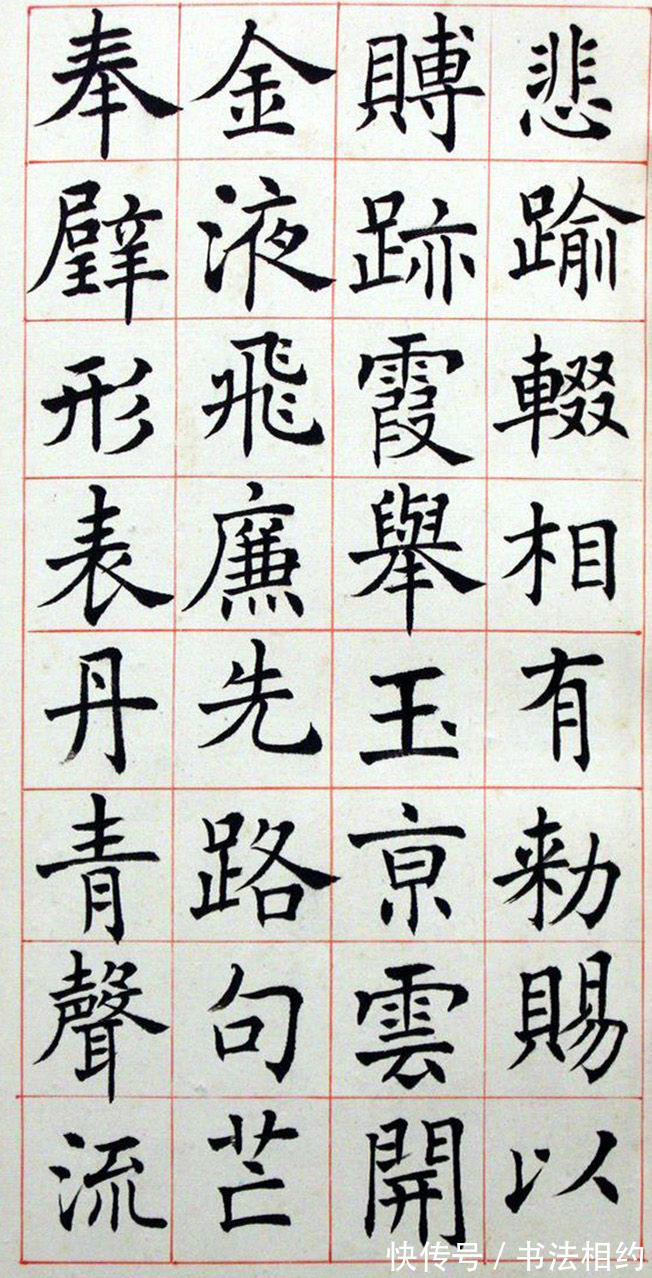 悲踰輟相有勑賜以
賻跡霞舉玉京雲開
金液飛廉先路句芒
奉壁形表丹青聲流
快传号 / 书法相约